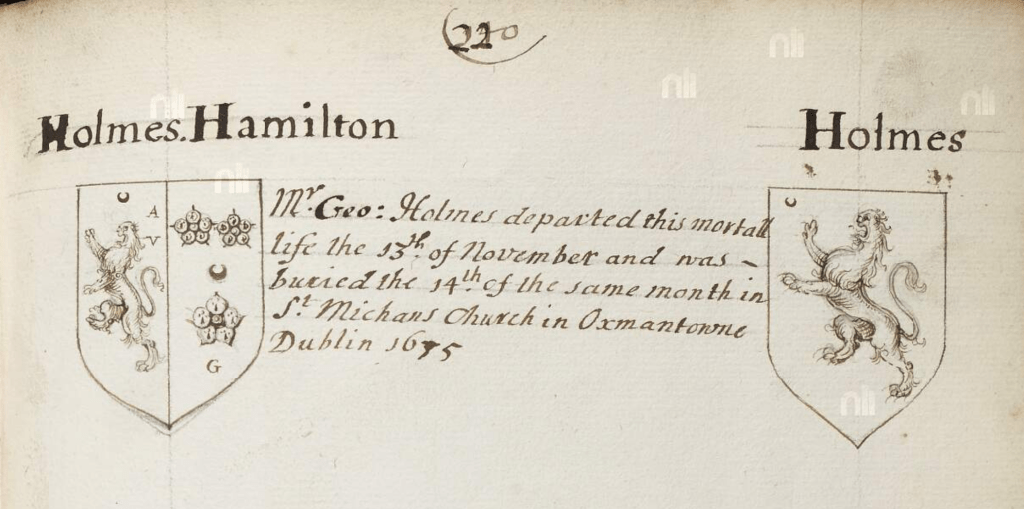 220
Holmes. Hamilton
Holmes
A
V
G
Mr. Geo: Holmes departed this mortall
life the 13th of November and was
buried the 14th of the same month in
St Michans Church in Oxmantowne
Dublin 1675
nli
nli
nli
nli
nli
nli